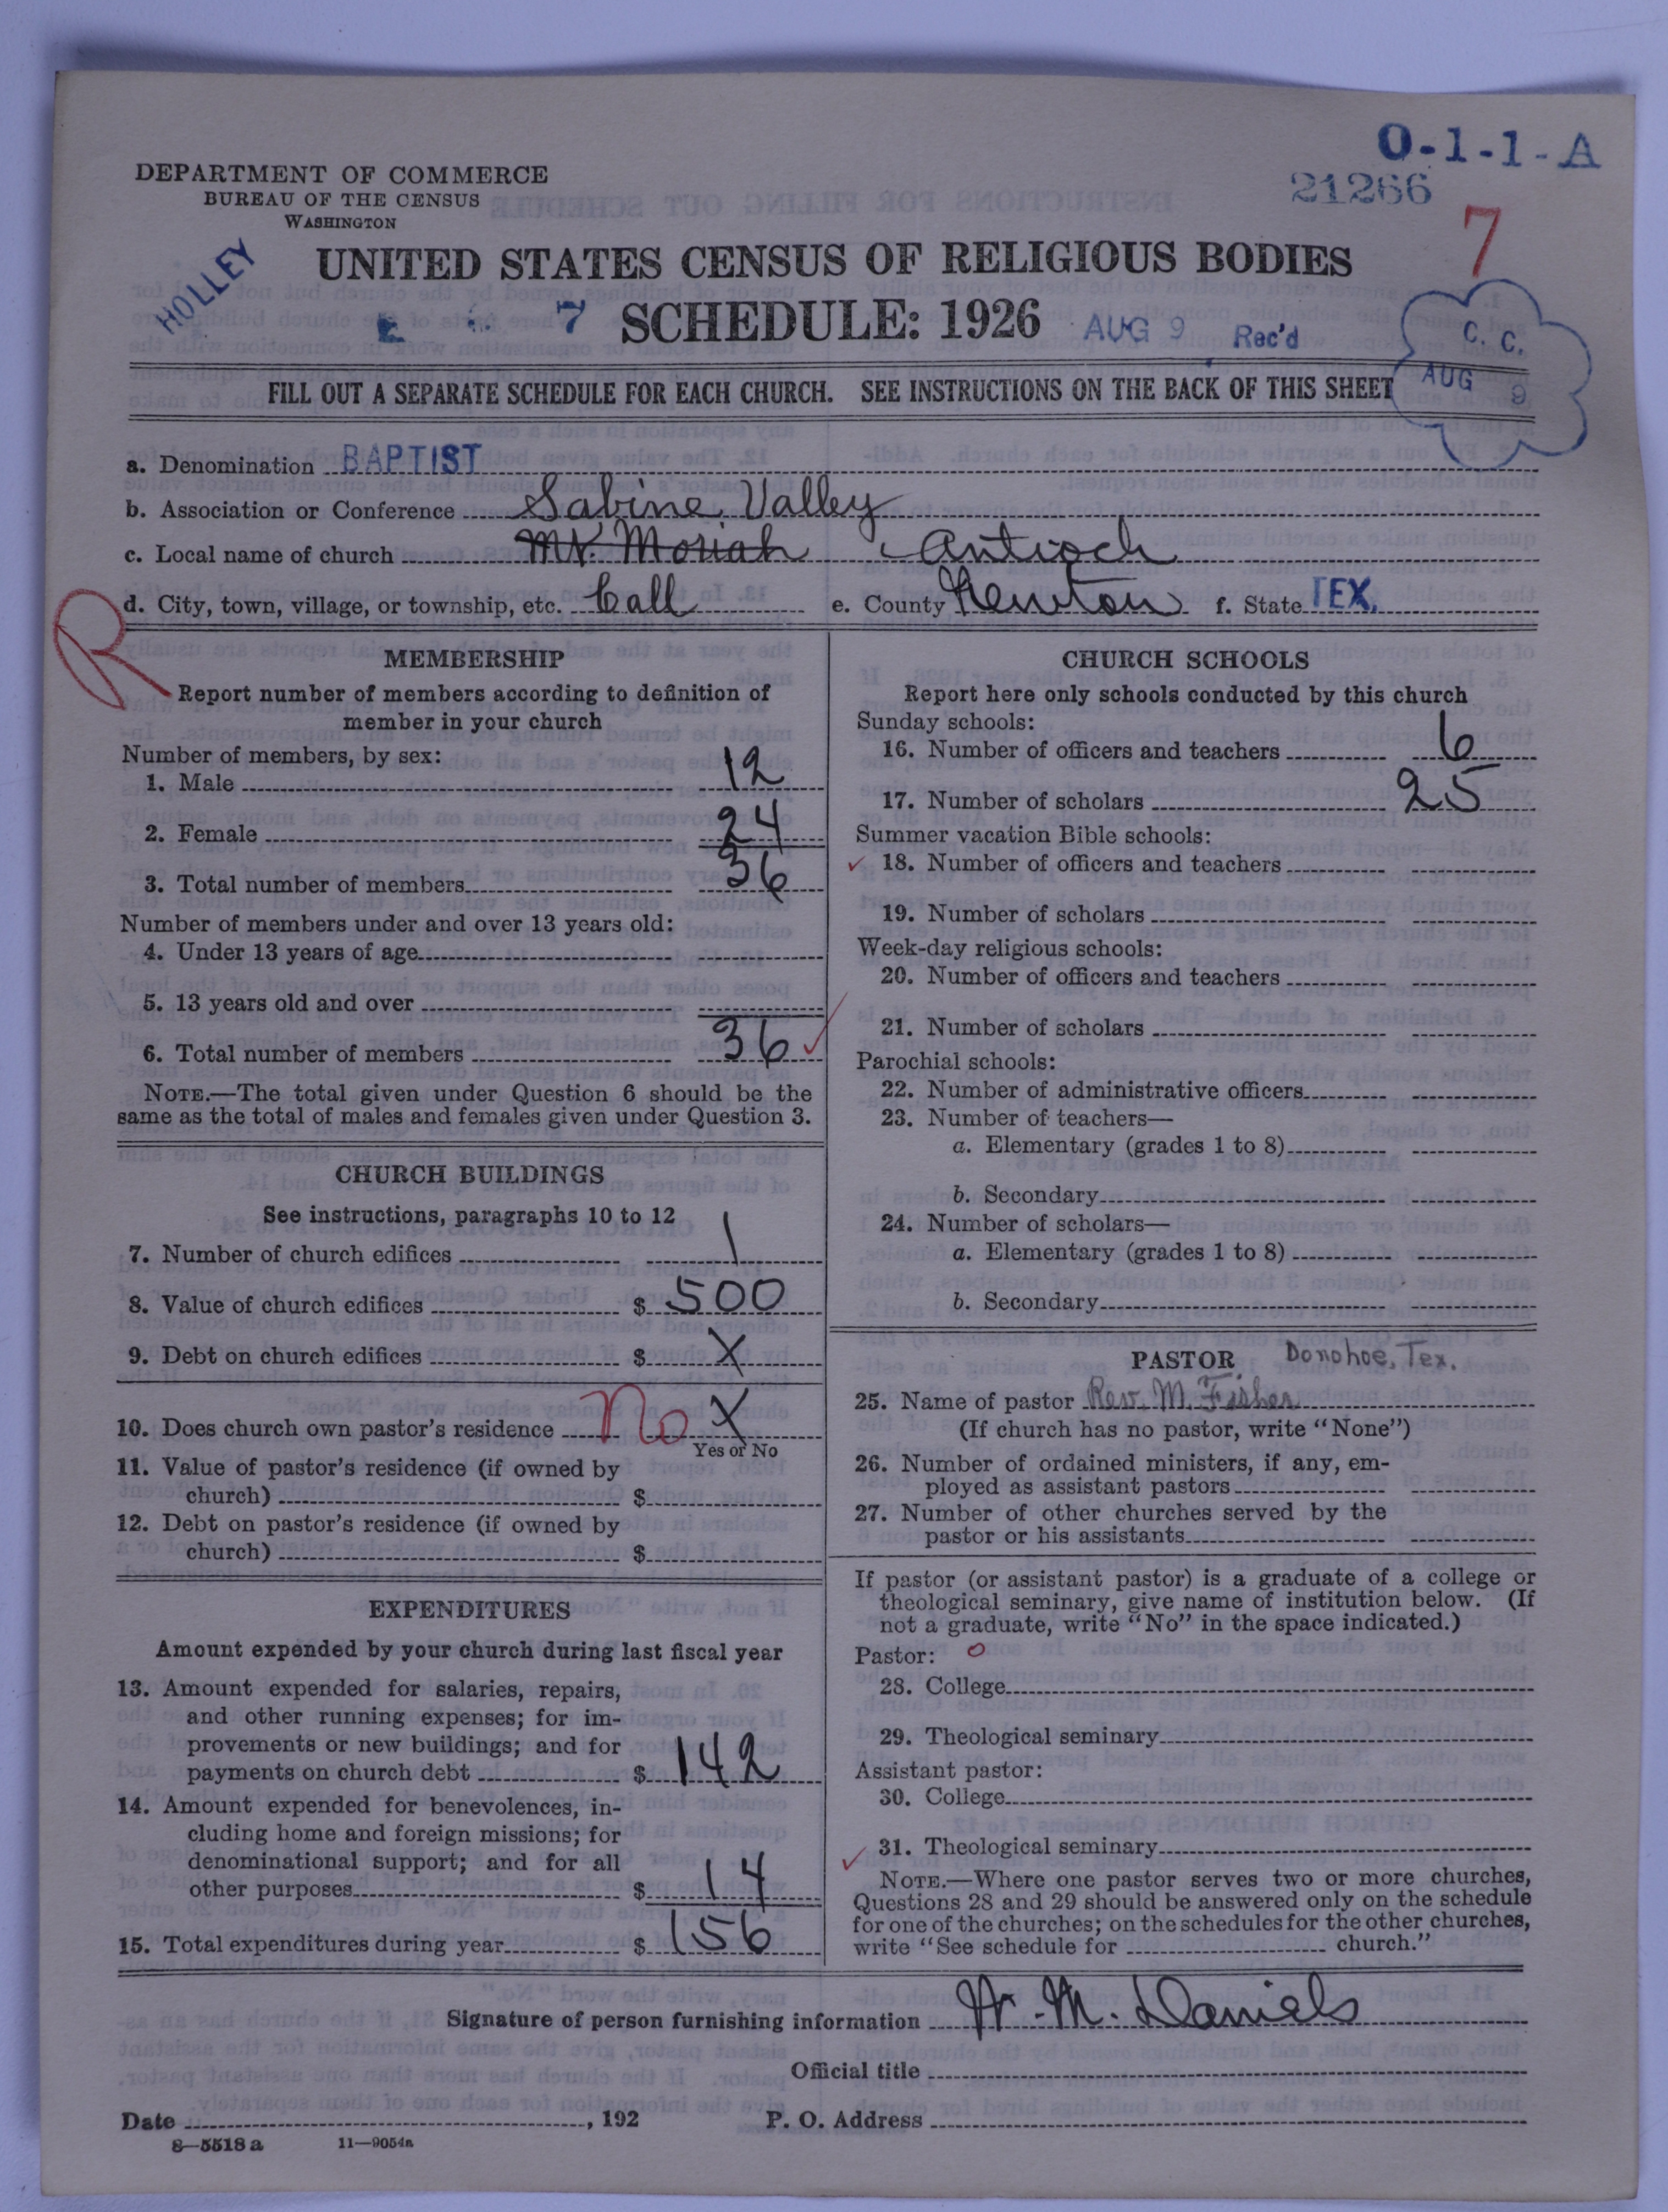 O-1-1-A
21266
7
DEPARTMENT OF COMMERCE
BUREAU OF THE CENSUS
WASHINGTON
HOLLEY
UNITED STATES CENSUS OF RELIGIOUS BODIES
7 SCHEDULE: 1926 AUG 9 Rec'd
C. C.
AUG 9
FILL OUT A SEPARATE SCHEDULE FOR EACH CHURCH. SEE INSTRUCTIONS ON THE BACK OF THIS SHEET
a. Denomination BAPTIST
b. Association or Conference Sabine Valley
c. Local name of church Mt. Moriah Antioch
d. City, town, village, or township, etc. Call e. County Newton f. State TEX.
R
MEMBERSHIP
Report number of members according to definition of
member in your church
Number of members, by sex:
1. Male 12
2. Female 24
3. Total number of members 36
Number of members under and over 13 years old:
4. Under 13 years of age
5. 13 years old and over
6. Total number of members 36
NOTE.—The total given under Question 6 should be the
same as the total of males and females given under Question 3.
CHURCH BUILDINGS
See instructions, paragraphs 10 to 12
7. Number of church edifices 1
8. Value of church edifices $ 500
9. Debt on church edifices $ X
10. Does church own pastor's residence No X
Yes or No
11. Value of pastor's residence (if owned by
church) $
12. Debt on pastor's residence (if owned by
church) $
EXPENDITURES
Amount expended by your church during last fiscal year
13. Amount expended for salaries, repairs,
and other running expenses; for im-
provements or new buildings; and for
payments on church debt $ 142
14. Amount expended for benevolences, in-
cluding home and foreign missions; for
denominational support; and for all
other purposes $ 14
15. Total expenditures during year $ 156
CHURCH SCHOOLS
Report here only schools conducted by this church
Sunday schools:
16. Number of officers and teachers 6
17. Number of scholars 25
Summer vacation Bible schools:
18. Number of officers and teachers
19. Number of scholars
Week-day religious schools:
20. Number of officers and teachers
21. Number of scholars
Parochial schools:
22. Number of administrative officers
23. Number of teachers—
a. Elementary (grades 1 to 8)
b. Secondary
24. Number of scholars—
a. Elementary (grades 1 to 8)
b. Secondary
PASTOR Donohoe, Tex.
25. Name of pastor Rev. M. Fisher
(If church has no pastor, write "None")
26. Number of ordained ministers, if any, em-
ployed as assistant pastors
27. Number of other churches served by the
pastor or his assistants
If pastor (or assistant pastor) is a graduate of a college or
theological seminary, give name of institution below. (If
not a graduate, write "No" in the space indicated.)
Pastor: 0
28. College
29. Theological seminary
Assistant pastor:
30. College
31. Theological seminary
NOTE.—Where one pastor serves two or more churches,
Questions 28 and 29 should be answered only on the schedule
for one of the churches; on the schedules for the other churches,
write "See schedule for church."
Signature of person furnishing information W. M. Daniels
Official title
Date , 192 P. O. Address
8—5518 a 11—9054a